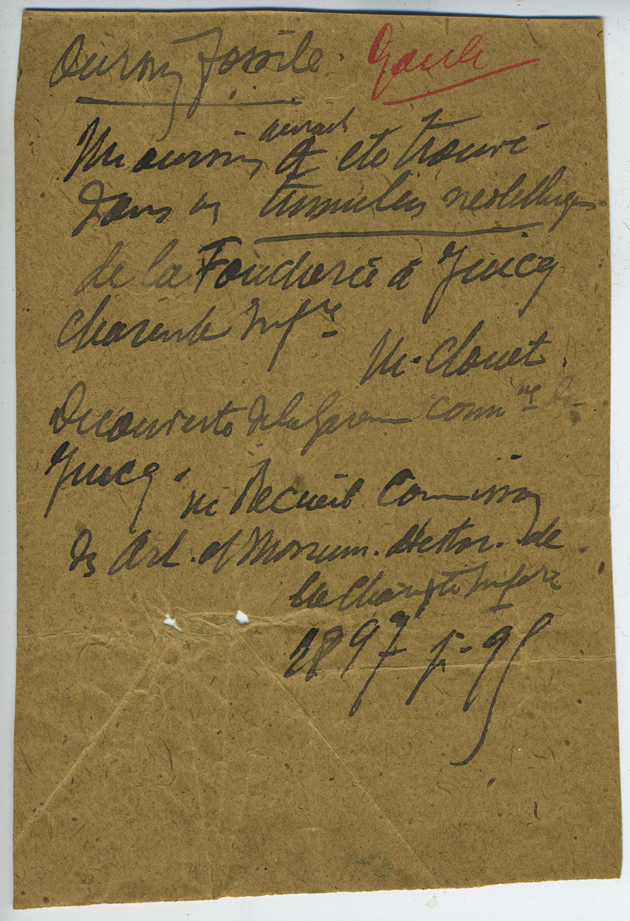 Oursin fossile. Gaule
Un oursin aurait été trouvé
dans un tumulus néolithique
de la Fonderie à Juicq
Charente Infre
M. Clouet.
Découverte de la Garenne comm ne de
Juicq, in Recueil Commission
des Arts et Monum. Histor. de
la Charente Infre
1897 p. 95